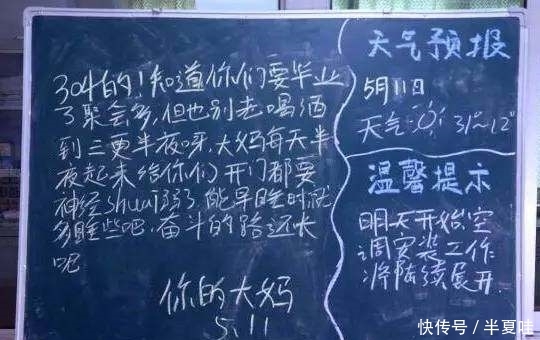 304的!知道你们要毕业
了聚会多,但也别老喝酒
到三更半夜呀,大妈每天半
夜起来给你们开门都要
神经shuai弱了,能早睡时就
多睡些吧,奋斗的路还长
呢
你的大妈
5.11
天气预报
5月11日
天气 31°~12°
温馨提示
明天开始空
调安装工作
将陆续展开.
快传号/半夏哇